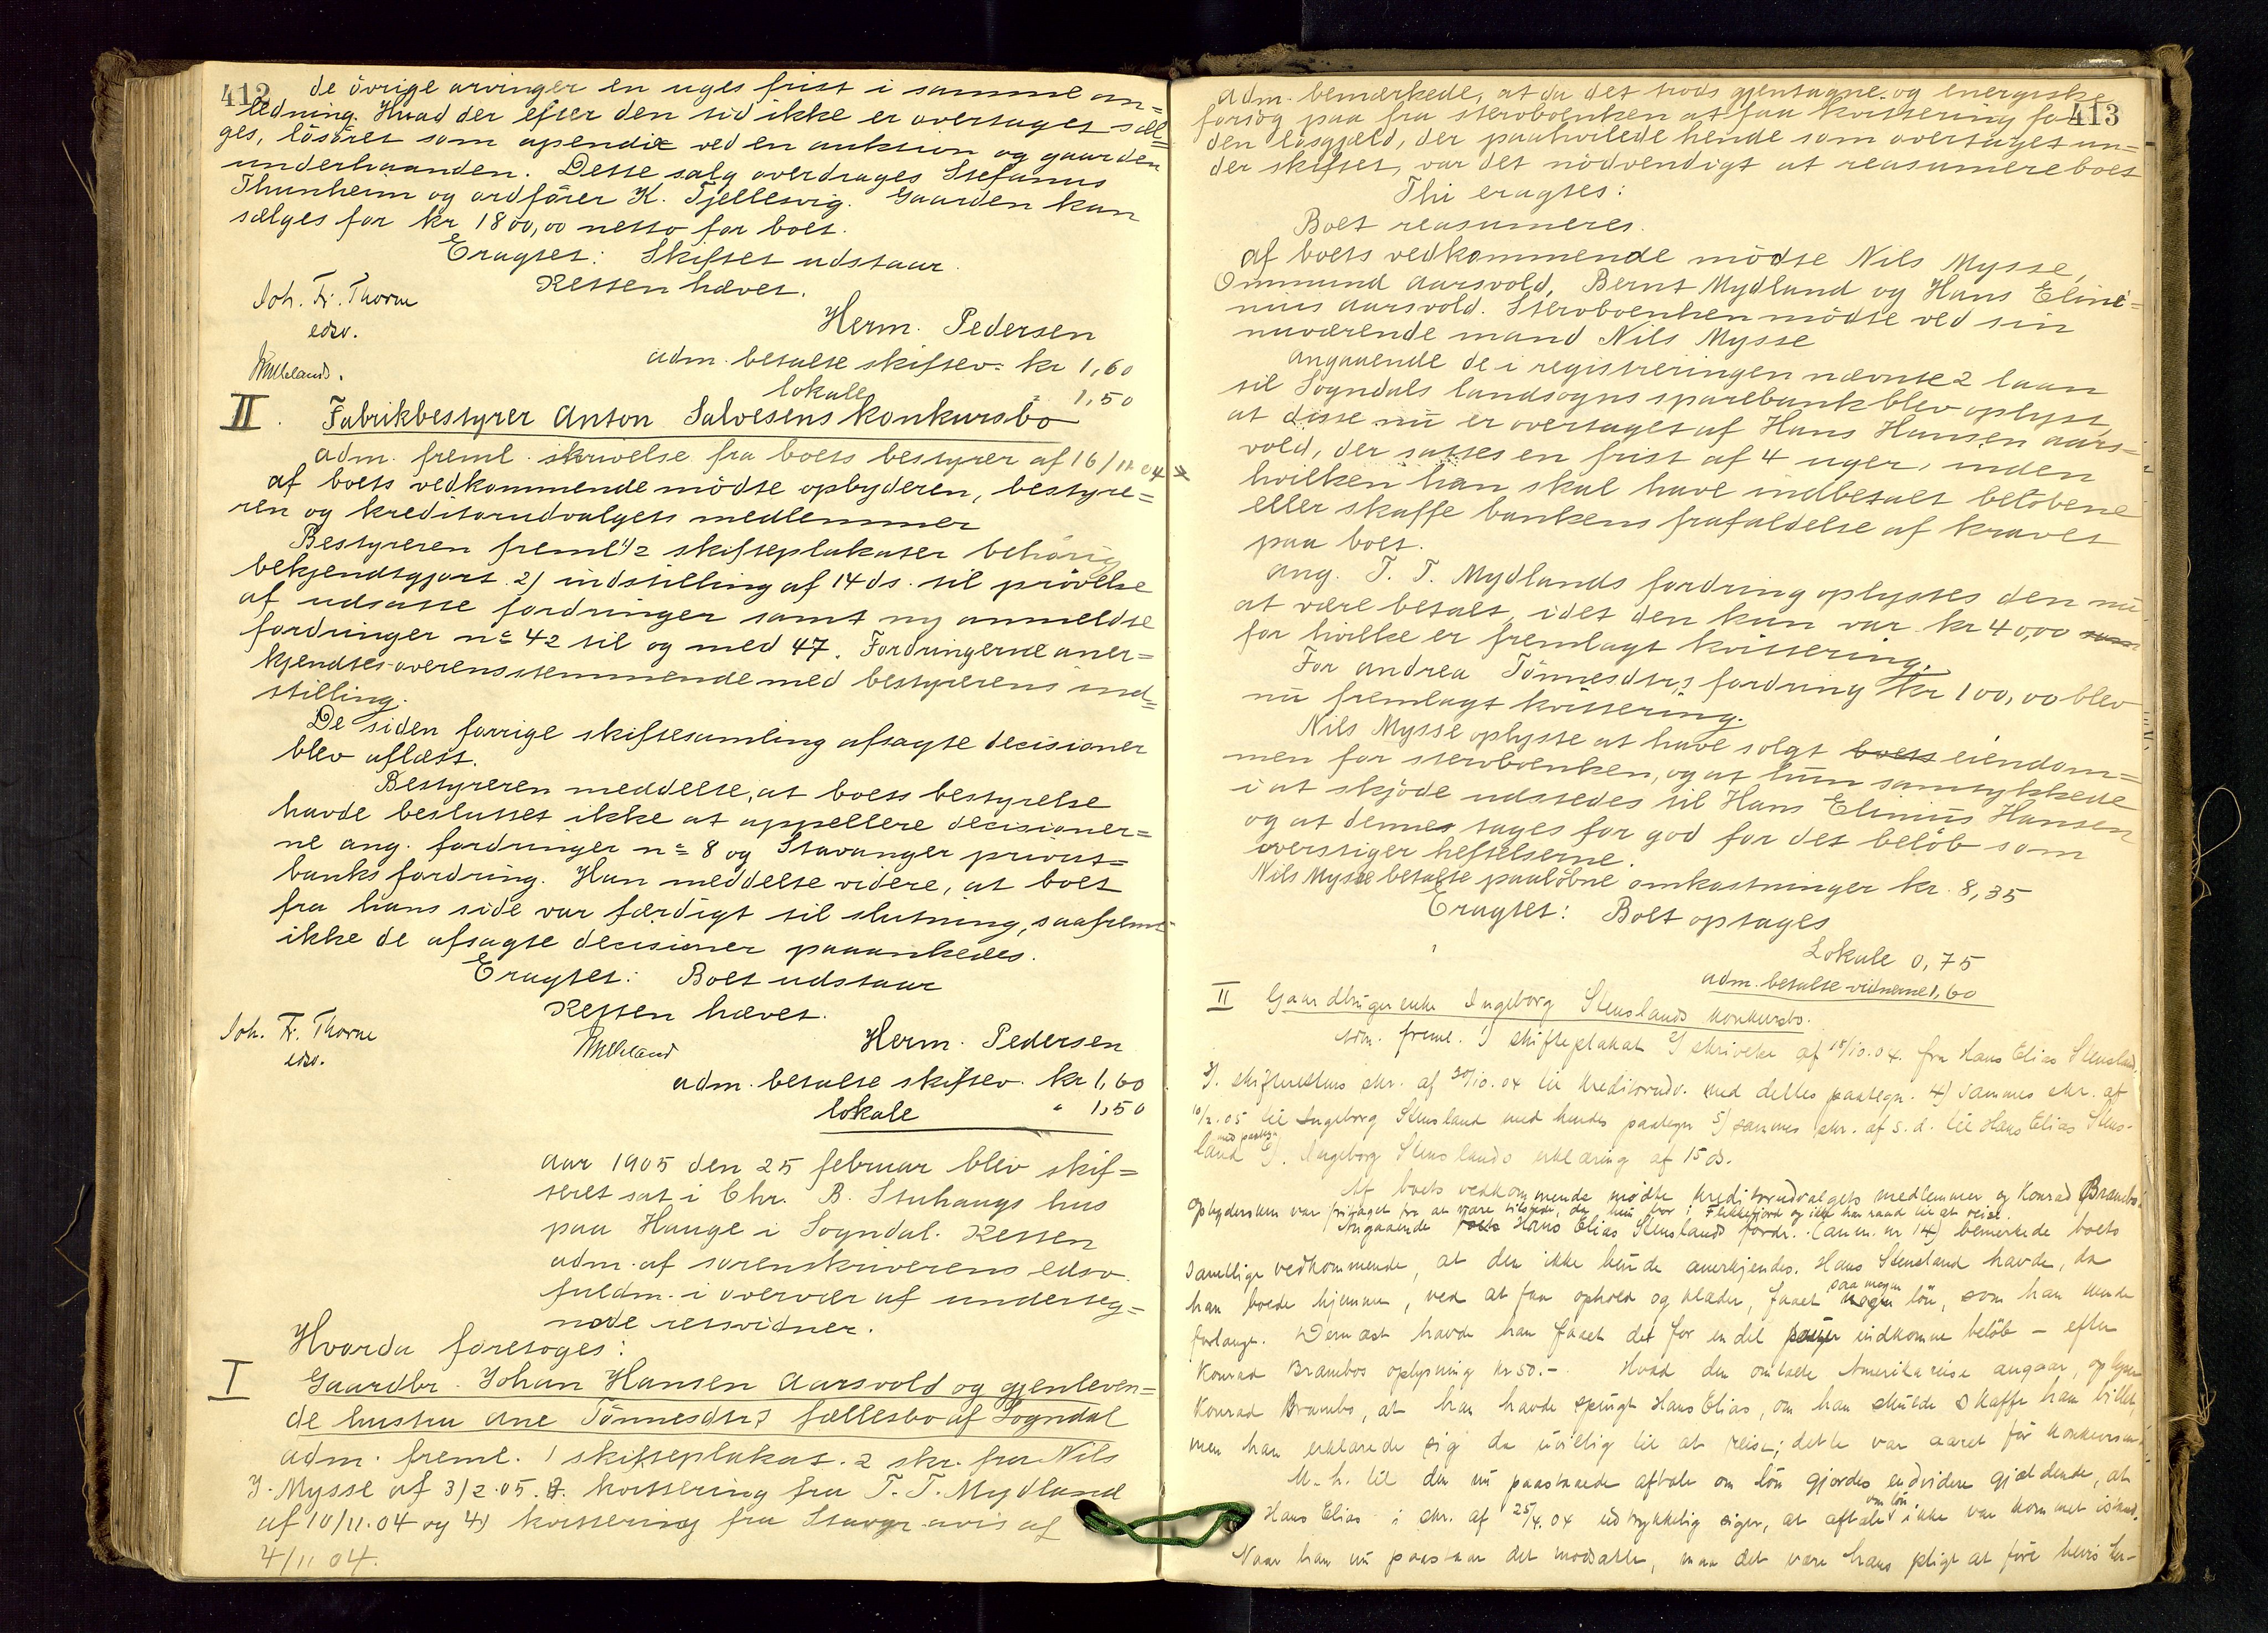 412
de övrige arvinger en uges frist i samme an=
ledning. Hvad der efter den tid ikke er overtaget sæl=
ges, lösöret som apendix ved en auktion og gaarden
underhaanden. Dette salg overdrages Stefanus
Thunheim og ordförer K. Tjellesvig. Gaarden kan
sælges for kr 1800,00 netto for boet.
Eragtet: Skiftet udstaar.
Retten hævet.
Joh. Fr. Thorne
edsv.
Herm. Pedersen
adm. betalte skiftev. kr 1,60
lokale " 1,50
II. Fabrikbestyrer Anton Salvesens konkursbo
adm. freml. skrivelse fra boets bestyrer af 16/12 04
af boets vedkommende mödte opbyderen, bestyre=
ren og kreditorudvalgets medlemmer
Bestyreren freml 1) 2 skifteplakater behörig
bekjendtgjort. 2) indstilling af 14 ds. til prövelse
af udsatte fordringer samt ny anmeldte
fordringer no 42 til og med 47. Fordringerne aner=
kjendtes overensstemmende med bestyrerens ind=
stilling.
De siden forrige skiftesamling afsagte decisioner
blev aflæst.
Bestyreren meddelte, at boets bestyrelse
havde besluttet ikke at appellere decisioner=
ne ang. fordringer no 8 og Stavanger privat=
banks fordring. Han meddelte videre, at boet
fra hans side var færdigt til slutning, saafremt
ikke de afsagte decisioner paaankedes.
Eragtet: Boet udstaar
Retten hævet.
Joh. Fr. Thorne
edsv.
Herm. Pedersen
adm. betalte skiftev. kr 1,60
lokale " 1,50
Aar 1905 den 25 februar blev skif=
teret sat i Chr. B. Stuhaugs hus
paa Hauge i Sogndal. Retten
adm. af sorenskriverens edsv.
fuldm. i overvær af underteg=
nede retsvidner.
Hvorda foretoges:
I Gaardbr. Johan Hansen Aarsvold og gjenleven=
de hustru Ane Tönnesdtrs fællesbo af Sogndal
adm. freml. 1 skifteplakat. 2 skr. fra Nils
J. Mysse af 3/2.05. 3. kvittering fra T. T. Mydland
af 10/11.04 og 4) kvittering fra Stavgr avis af
4/11 04.
413
Adm. bemærkede, at da det trods gjentagne og energiske
forsög paa fra sterboenken at faa kvittering for
den lösgjeld, der paahvilede hende som overtaget un=
der skiftet, var det nödvendigt at reasumere boet
Thi eragtes:
Boet reasumeres.
Af boets vedkommende mödte Nils Mysse,
Ommund Aarsvold, Bernt Mydland og Hans Elini=
nus Aarsvold. Sterboenken mödte ved sin
nuværende mand Nils Mysse
Angaaende de i registreringen nævnte 2 laan
til Sogndals landsogns sparebank blev oplyst,
at disse nu er overtaget af Hans Hansen Aars=
vold, der sattes en frist af 4 uger, inden
hvilken han skal have indbetalt belöbene
eller skaffe bankens frafaldelse af kravet
paa boet.
Ang. T. T. Mydlands fordring oplystes den nu
at være betalt, idet den kun var kr 40,00 som
for hvilke er fremlagt kvittering.
For Andrea Tönnesdtrs fordring kr 100,00 blev
nu fremlagt kvittering.
Nils Mysse oplyste at have solgt boets eiendom=
men for sterboenken, og at hun samtykkede
i at skjöde udstedes til Hans Elinius Hansen
og at dennes tages for god for det belöb som
overstiger heftelserne.
Nils Mysse betalte paalöbne omkostninger kr. 8,35
Eragtet: Boet optages
Lokale 0,75
adm. betalte vidnerne 1,60
II Gaardbrugerenke Ingeborg Stenslands konkursbo.
Adm. freml. 1) skifteplakat 2) skrivelse af 18/10.04 fra Hans Elias Stensland,
3). skifterettens skr. af 30/10.04 til kreditorudv. med dettes paategn. 4) sammes skr. af
10/2.05 til Ingeborg Stensland med hendes paategn 5) sammes skr. af s.d. til Hans Elias Stens-
land med paategn 6). Ingeborg Stenslands erklæring af 15 ds.
Af boets vedkommende mödte kreditorudvalgets medlemmer og Konrad Brambo.
Opbydersken var fritaget fra at være tilstede, da hun bor i Flekkefjord og ikke har raad til at reise.
Angaaende boets Hans Elias Stenslands fordr. (anm. nr 14) bemerkede boets
samtlige vedkommende, at den ikke kunde anerkjendes. Hans Stensland havde, da
han boede hjemme, ved at faa ophold og klæder, faaet saa megen lön, som han kunde
forlange. Dernæst havde han faaet det for en del indkomne belöb – efter
Konrad Brambos oplysning kr 50.– Hvad den omtalte Amerikareise angaar, oplyser
Konrad Brambo, at han havde spurgt Hans Elias, om han skulde skaffe ham billet,
men han erklærede sig da uvillig til at reise; dette var aaret för konkursen.
M. h. til den nu paastaaede aftale om lön gjordes endvidere gjældende, at
Hans Elias i skr. af 25/4.04 udtrykkelig siger, at aftale om lön ikke var kommet istand.
Naar han nu paastaar det modsatte, maa det være hans pligt at före bevis her-